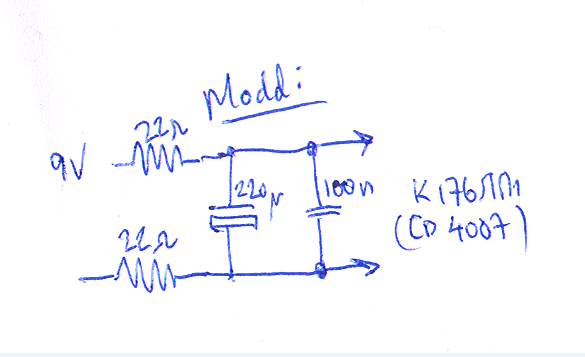 Moddi
22Ω
9V
220μ
100n
K176ЛП1
(CD 4007)
22Ω